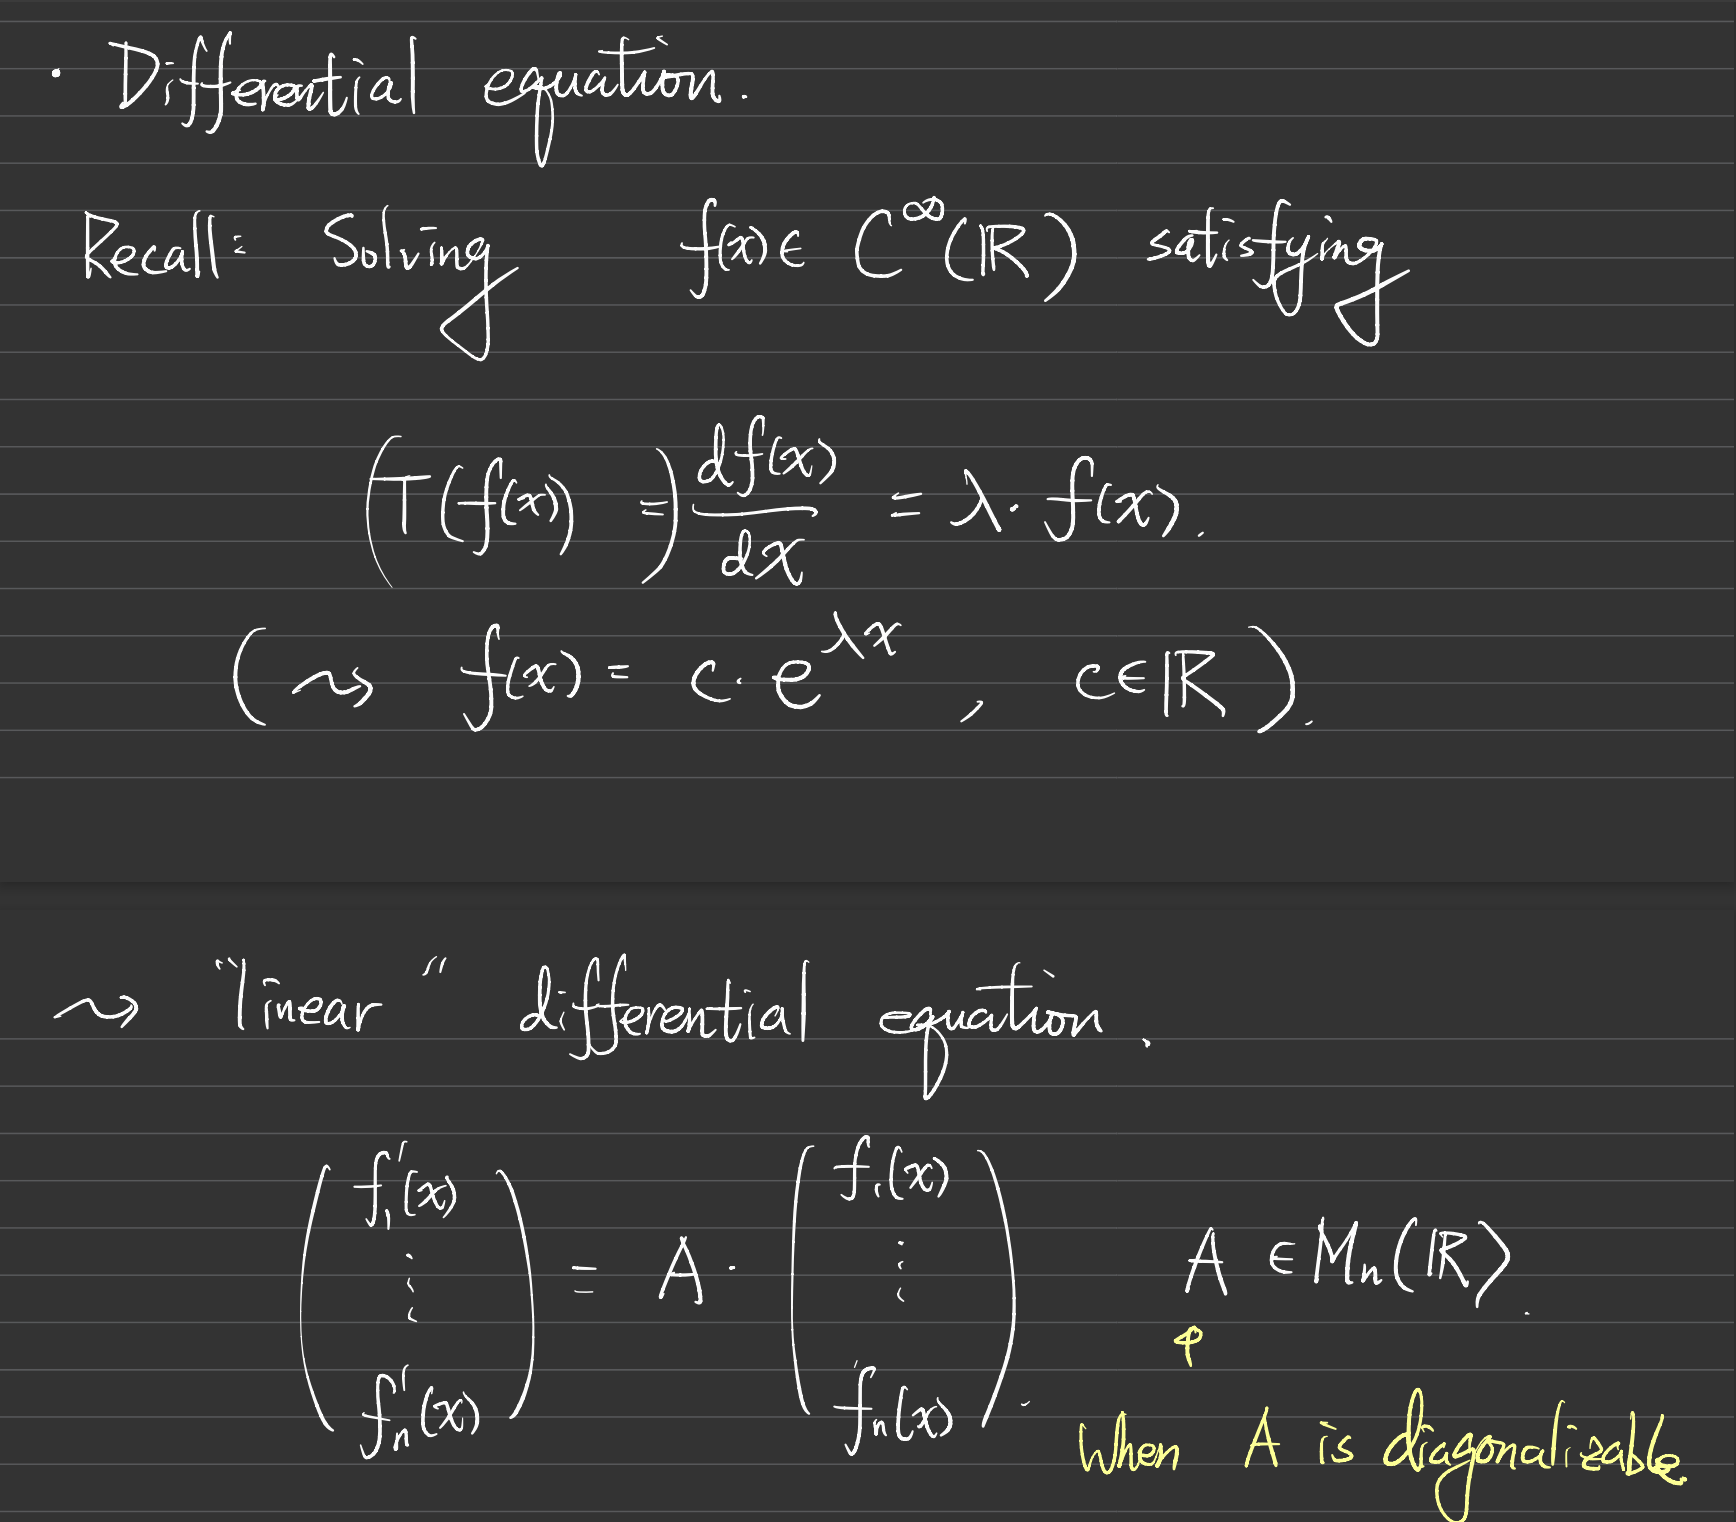 · Differential equation.
Recall: Solving f(x) ∈ C^∞(ℝ) satisfying
(T(f(x)) =) df(x)/dx = λ· f(x).
(⇝ f(x) = c· e^{λx} , c∈ℝ).
⇝ "linear" differential equation.
( f₁'(x) ⋮ fₙ'(x) ) = A· ( f₁(x) ⋮ fₙ(x) ). A ∈ Mₙ(ℝ).
↑
When A is diagonalizable.